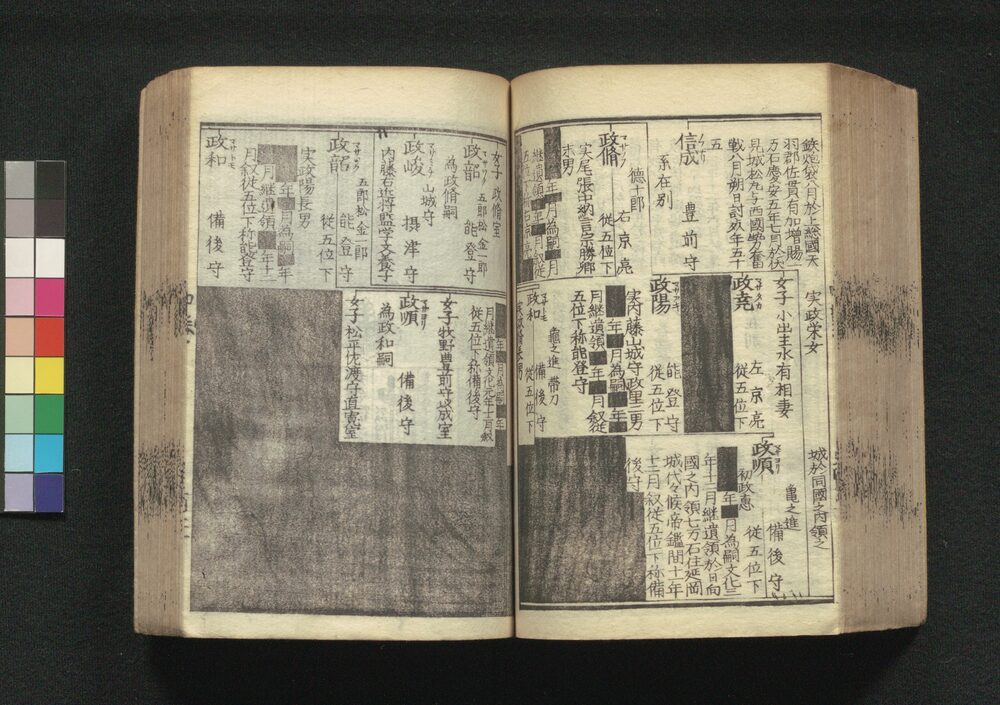 鉄炮頭八月於上総國天
羽郡佐貫有加増賜一
万石慶安五年七月於伏
見城松丸与西國勢奮
戦八月朔日討死年五十
五
信成 豊前守
系在別
政脩 右京亮
徳十郎 従五位下
実尾張中納言宗勝卿
末男
継遺領
月叙従
実政栄女
女子 小出主水有相妻
政尭 左京亮
従五位下
政陽 能登守
従五位下
実内藤山城守政里二男
年 月為嗣 年
月継遺領 年 月叙従
五位下称能登守
政和 備後守
亀之進 帯刀 従五位下
城於同國之内領之
亀之進
政順 備後守
初政恵 従五位下
年 月為嗣文化三
年十二月継遺領於日向
國之内領七万石住延岡
城代々候帝鑑間十一年
十二月叙従五位下称備
後守
女子 政脩室
政韶 能登守
五郎松 金一郎
為政脩嗣
政峻 摂津守
山城守
内藤右近将監学文養子
政韶 能登守
五郎松 金一郎 従五位下
実政陽長男
年 月為嗣 年
月継遺領 年十二
月叙従五位下称能登守
政和 備後守
年 月為嗣 年
月継遺領文化元年十一月叙
従五位下称備後守
女子 牧野豊前守以成室
政順 備後守
為政和嗣
女子 松平佐渡守直寛室